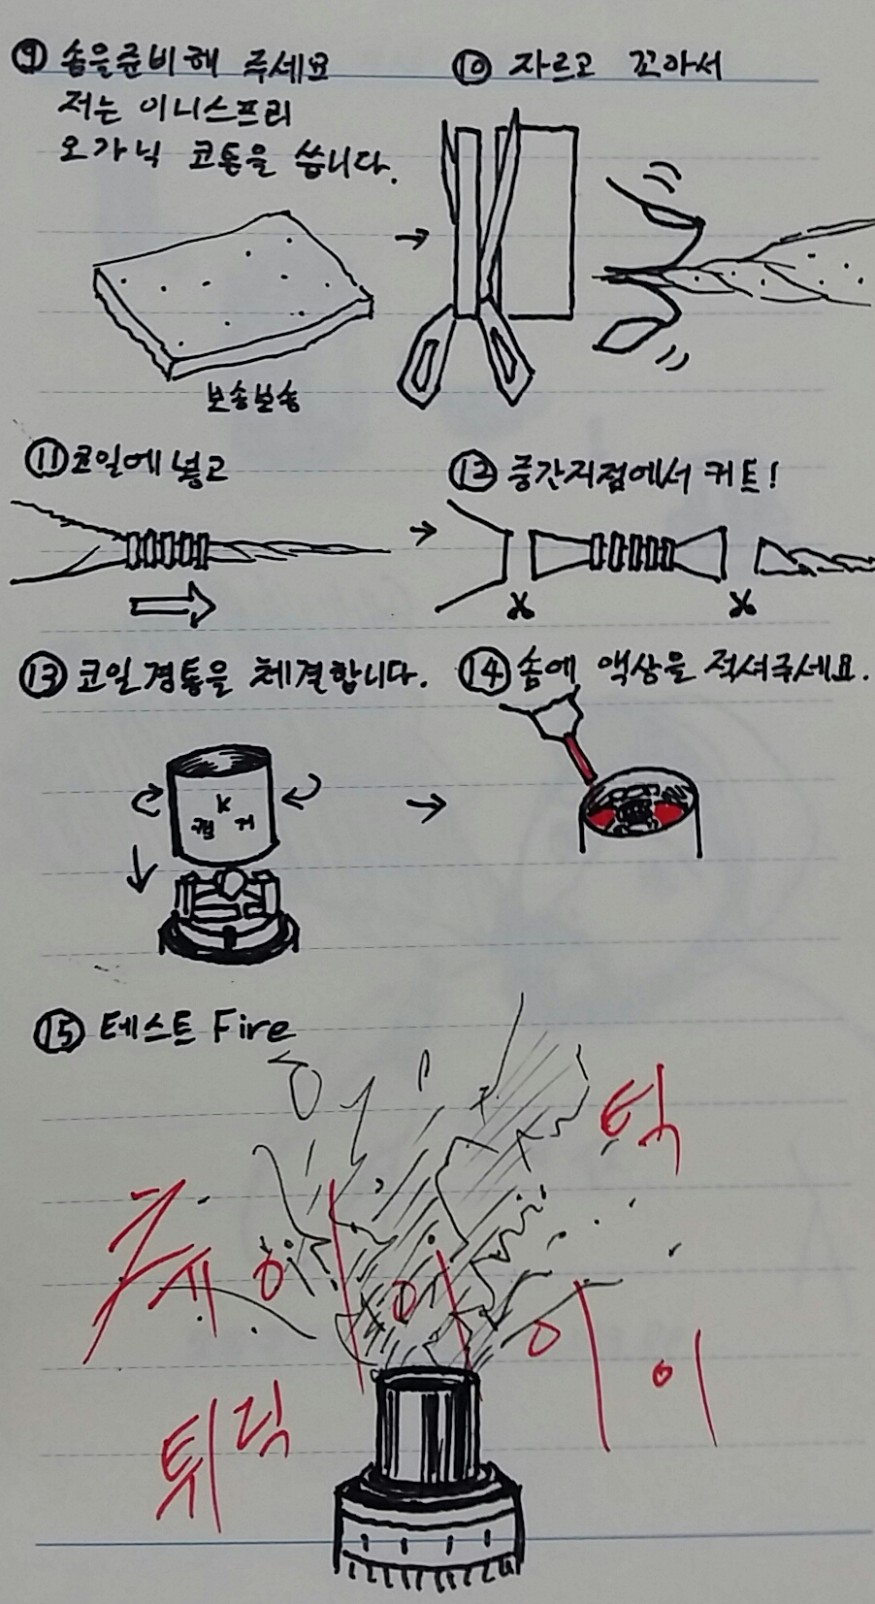 ⑨ 솜을준비해 주세요
저는 이니스프리
오가닉 코튼을 씁니다.
보송보송
⑩ 자르고 꼬아서
⑪ 코일에 넣고
⑫ 중간지점에서 커트!
⑬ 코일경통을 체결합니다.
K
⑭ 솜에 액상을 적셔주세요.
⑮ 테스트 Fire
틱
이이
튀릭